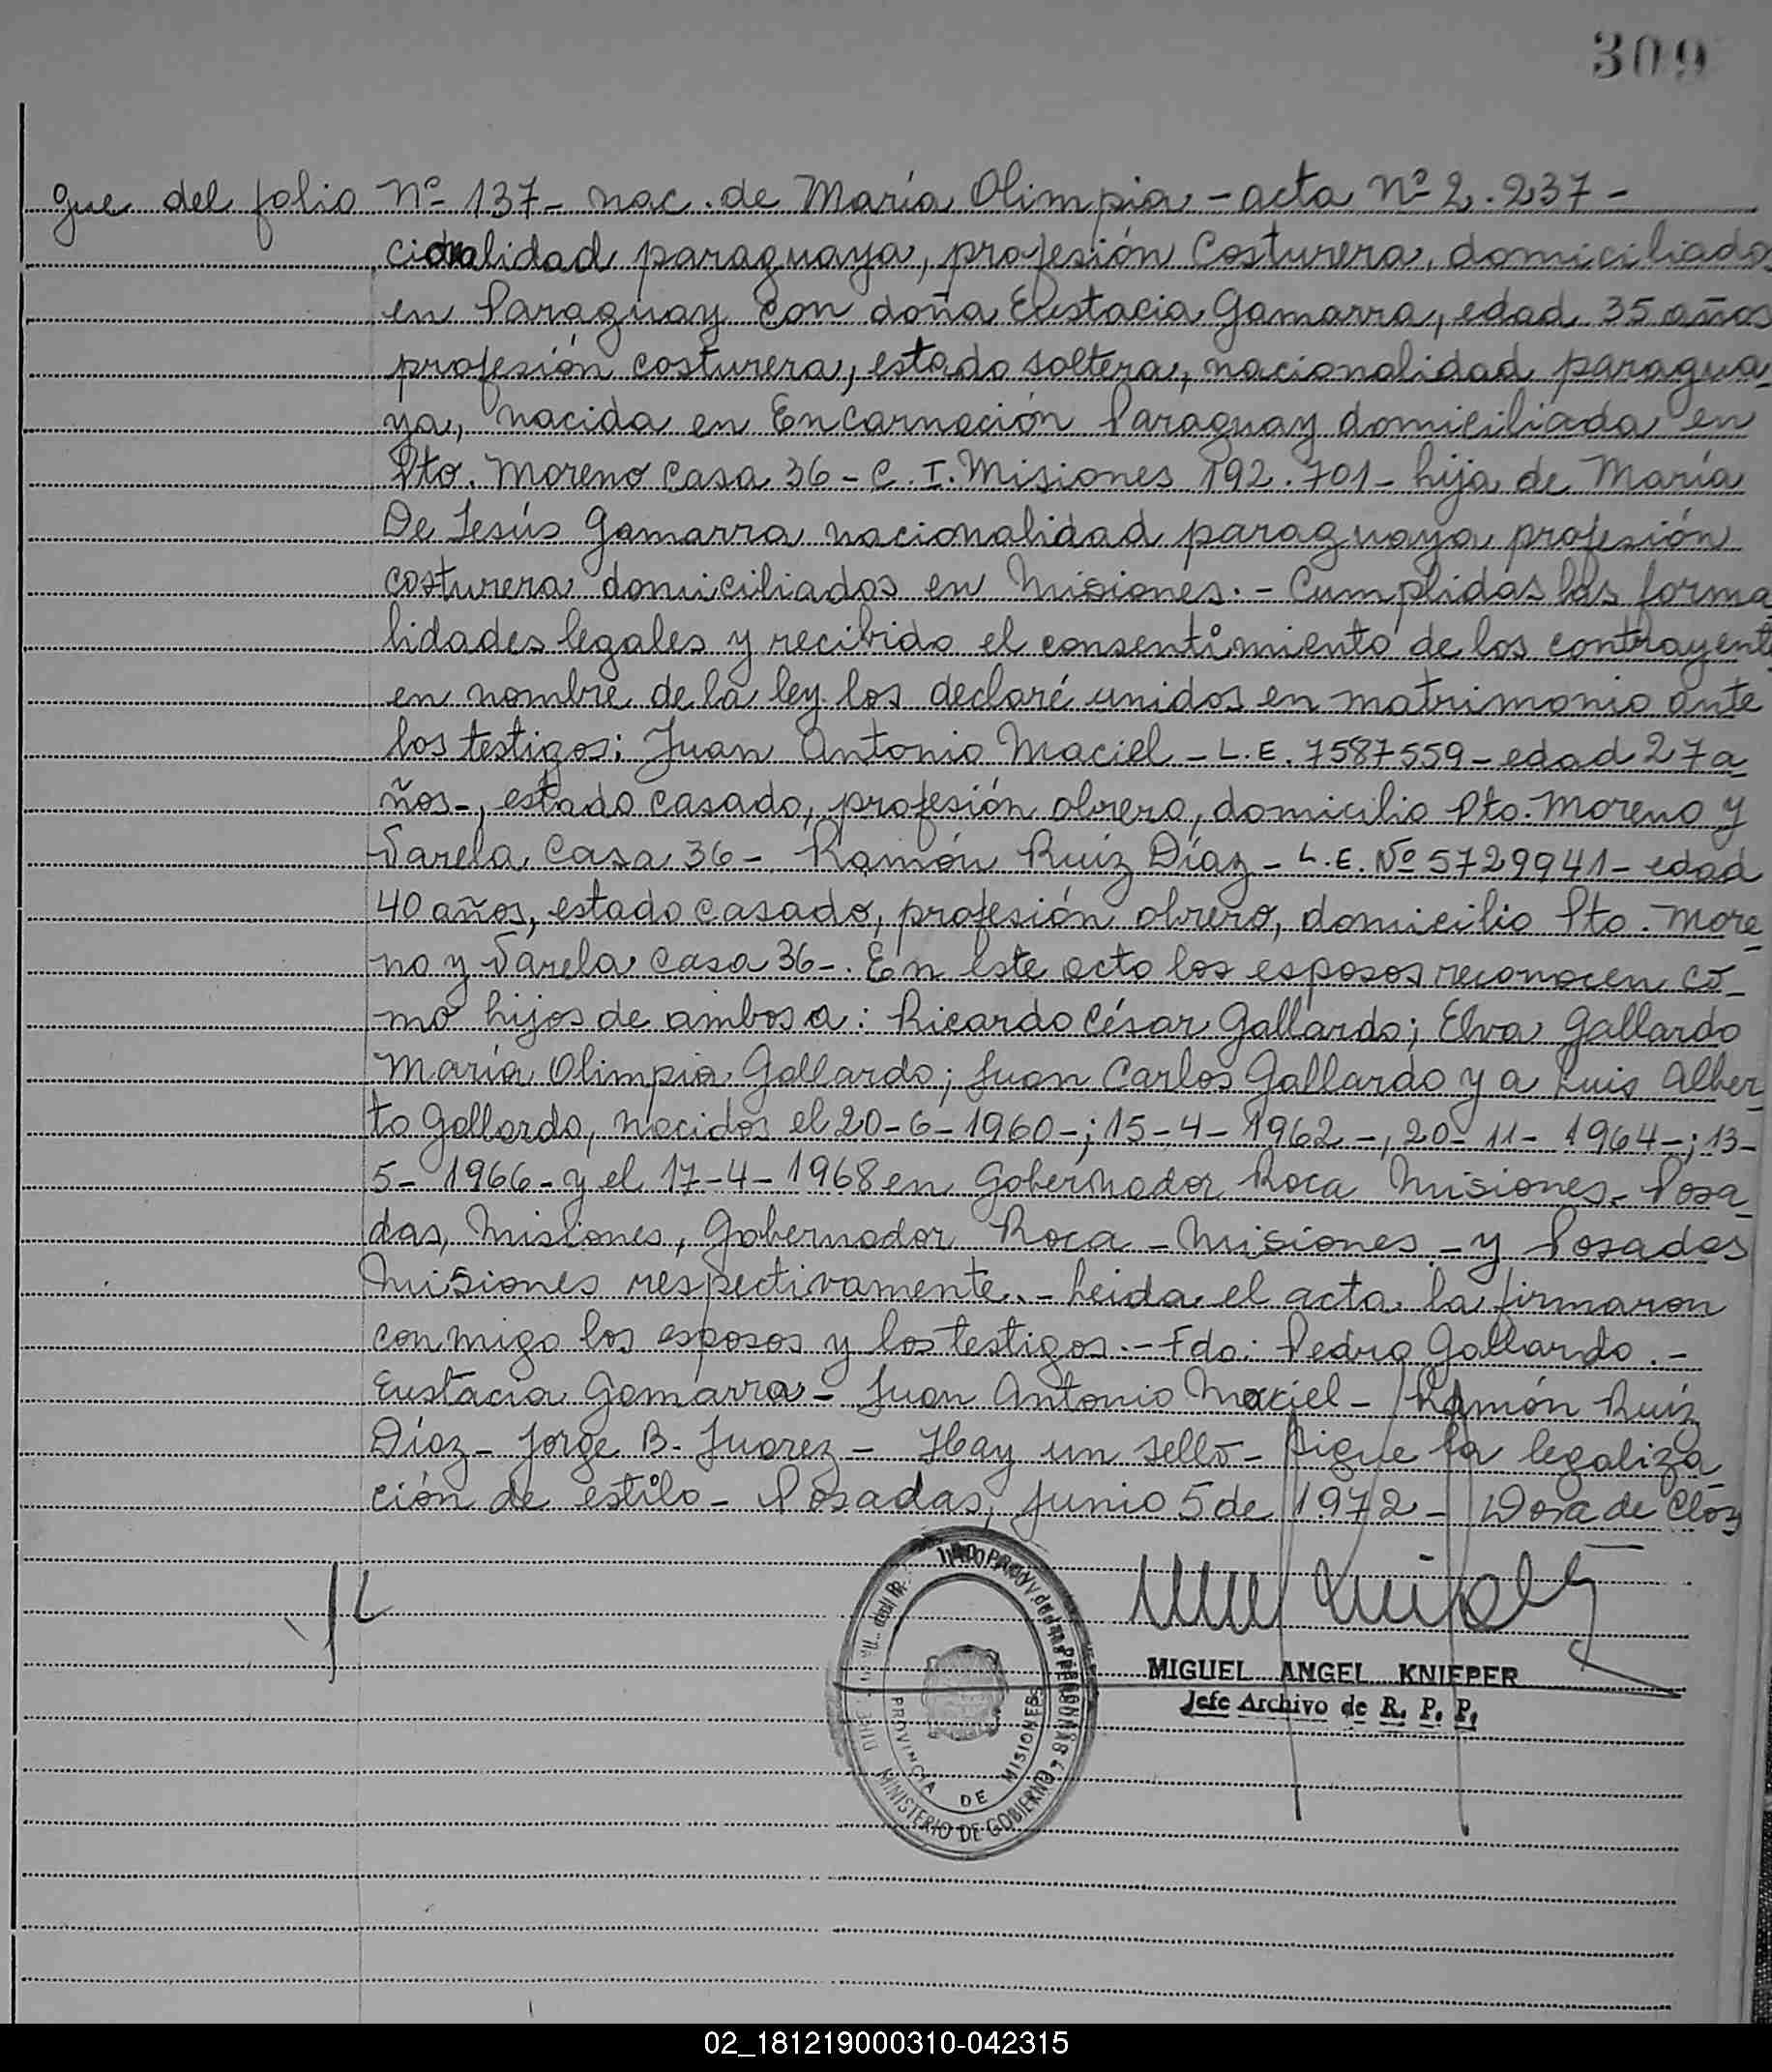 309
gue del folio Nº 137- nac. de María Olimpia - acta Nº 2.237-
cionalidad paraguaya, profesión Costurera, domiciliados
en Paraguay con doña Eustacia Gamarra, edad 35 años
profesión costurera, estado soltera, nacionalidad paragua-
ya, nacida en Encarnación Paraguay domiciliada en
Pto. Moreno Casa 36 - C. I. Misiones 192.701 - hija de María
De Jesús Gamarra nacionalidad paraguaya profesión
costurera domiciliados en Misiones.- Cumplidas las forma
lidades legales y recibido el consentimiento de los contrayent
en nombre de la ley los declaré unidos en matrimonio ante
los testigos: Juan Antonio Maciel - L.E. 7587559 - edad 27 a-
ños-, estado casado, profesión obrero, domicilio Pto. Moreno y
Varela Casa 36 - Ramón Ruíz Díaz - L.E. Nº 5729941 - edad
40 años, estado casado, profesión obrero, domicilio Pto. More-
no y Varela Casa 36-. En este acto los esposos reconocen co-
mo hijos de ambos a: Ricardo César Gallardo; Elva Gallardo
María Olimpia Gallardo; Juan Carlos Gallardo y a Luis Alber-
to Gallardo, nacidos el 20-6-1960-; 15-4-1962-, 20-11-1964-; 13-
5-1966- y el 17-4-1968 en Gobernador Roca Misiones. Posa-
das, Misiones, Gobernador Roca - Misiones - y Posadas
Misiones respectivamente.- Leida el acta la firmaron
conmigo los esposos y los testigos.- Fdo: Pedro Gallardo.-
Eustacia Gamarra - Juan Antonio Maciel - Ramón Ruíz
Díaz - Jorge B. Juarez - Hay un sello - Sigue la legaliza-
ción de estilo - Posadas, Junio 5 de 1972 - Dora de Clos
MIGUEL ANGEL KNIEPER
Jefe Archivo de R. P. P.
PROVINCIA DE MISIONES
MINISTERIO DE GOBIERNO
02_181219000310-042315